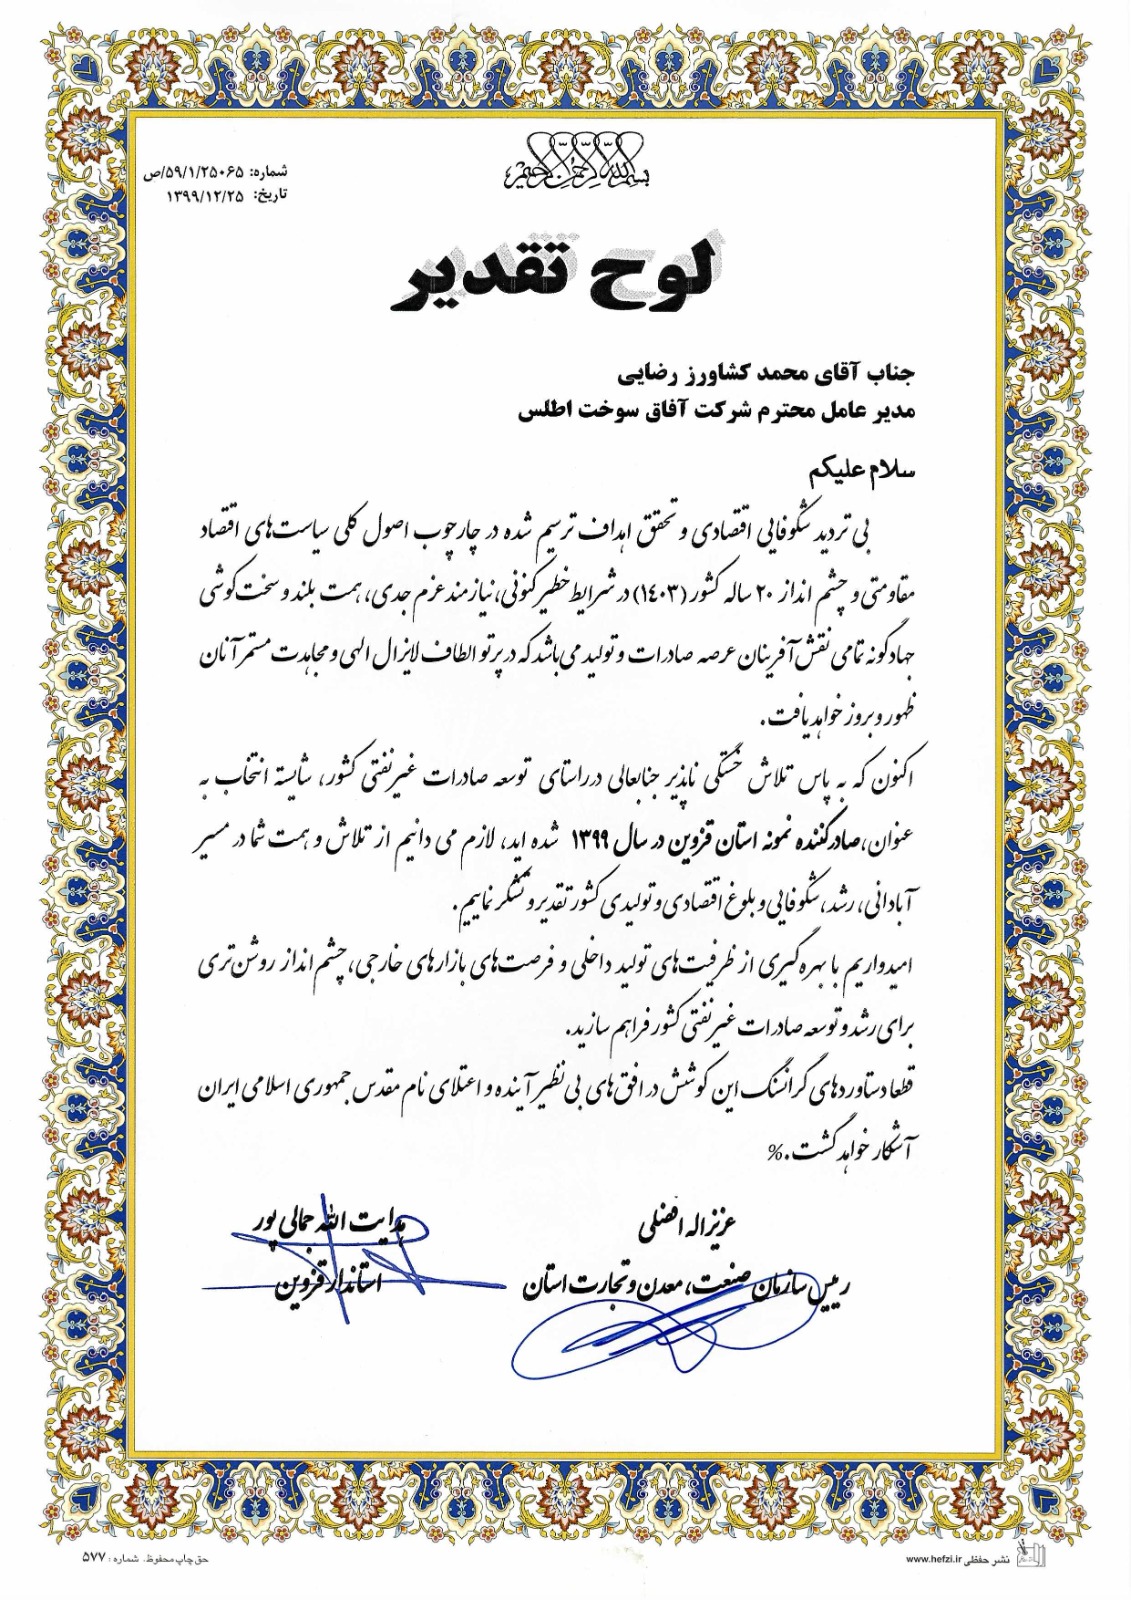 بسم الله الرحمن الرحیم
شماره: ۵۹/۱/۲۵۰۶۵/ص
تاریخ: ۱۳۹۹/۱۲/۲۵
لوح تقدیر
جناب آقای محمد کشاورز رضایی
مدیر عامل محترم شرکت آفاق سوخت اطلس
سلام علیکم
بی تردید شکوفایی اقتصادی و تحقق اهداف ترسیم شده در چارچوب اصول کلی سیاست‌های اقتصاد
مقاومتی و چشم انداز ۲۰ ساله کشور (۱٤۰۳) در شرایط خطیر کنونی، نیازمند عزم جدی، همت بلند و سخت‌کوشی
جهادگونه تمامی نقش‌آفرینان عرصه صادرات و تولید می‌باشد که در پرتو الطاف لایزال الهی و مجاهدت مستمر آنان
ظهور و بروز خواهد یافت.
اکنون که به پاس تلاش خستگی ناپذیر جنابعالی در راستای توسعه صادرات غیرنفتی کشور، شایسته انتخاب به
عنوان، صادرکننده نمونه استان قزوین در سال ۱۳۹۹ شده اید، لازم می دانیم از تلاش و همت شما در مسیر
آبادانی، رشد، شکوفایی و بلوغ اقتصادی و تولیدی کشور تقدیر و تشکر نماییم.
امیدواریم با بهره گیری از ظرفیت‌های تولید داخلی و فرصت‌های بازارهای خارجی، چشم انداز روشن‌تری
برای رشد و توسعه صادرات غیرنفتی کشور فراهم سازید.
قطعا دستاوردهای گرانسنگ این کوشش در افق‌های بی نظیر آینده و اعتلای نام مقدس جمهوری اسلامی ایران
آشکار خواهد گشت.%
عزیزاله افضلی
رییس سازمان صنعت، معدن و تجارت استان
هدایت الله جمالی پور
استاندار قزوین
نشر حفظی www.hefzi.ir
حق چاپ محفوظ. شماره: ۵۷۷